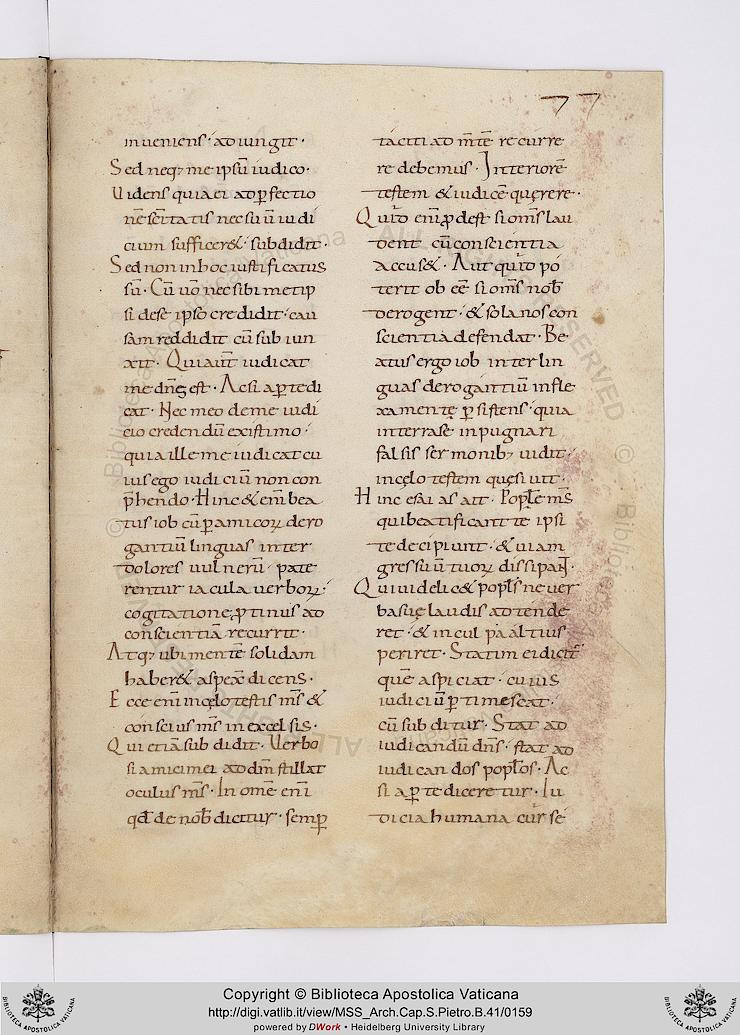 77
inueniens · adiungit ·
Sed neq; me ipsū iudico ·
Uidens quia ei ad ꝑfectio
nē sc̄itatis nec suū iudi
cium sufficer& · subdidit ·
Sed non in hoc iustificatus
sū · Cū uō nec sibimetip
si de se ipso credidit · cau
sam reddidit cū subiun
xit · Qui aūt iudicat
me dn̄s est · Ac si aꝑte di
cat · Nec meo de me iudi
cio credendū existimo ·
quia ille me iudicat cu
ius ego iudiciū non con
p̄hendo · Hinc & enī bea
tus iob cū ꝑ amicoꝝ dero
gantiū linguas inter
dolores uulnerū · pate
rentur iacula uerboꝝ ·
cogitatione ꝓtinus ad
conscientiā recurrit ·
Atq; ubi mentē solidam
haber& aspex̄ dicens ·
Ecce enī in cęlo testis ms̄ &
conscius ms̄ in excelsis ·
Qui etiā subdidit · Uerbo
si amici mei ad dm̄ stillat
oculus ms̄ · In om̄e enī
qd̄ de nob̄ dicitur · semꝑ
taciti ad m̄tē recurre
re debemus · Interiorē
testem & iudicē quęrere ·
Quid enī ꝓdest si om̄s lau
dent cū conscientia
accus& · Aut quid po
terit obēē si om̄s nob̄
derogent · & sola nos con
scientia defendat · Be
atus ergo iob inter lin
guas derogantiū infle
xa mente ꝑsistens · quia
in terra se inpugnari
falsis sermonib; uidit ·
in cęlo testem quęsiuit ·
Hinc esaias ait · Popl̄e ms̄
qui beatificant te ipsi
te decipiunt · & uiam
gressuū tuoꝝ dissipan̄t ·
Qui uidelic& popl̄s ne uer
ba suę laudis adtende
ret · & in culpa altius
periret · Statim ei dicit̄
quē aspiciat · cuius
iudiciū ꝑtimescat ·
cū subditur · Stat ad
iudicandū dn̄s · stat ad
iudicandos popl̄os · Ac
si aꝑte diceretur · Iu
dicia humana cur se
Copyright © Biblioteca Apostolica Vaticana
http://digi.vatlib.it/view/MSS_Arch.Cap.S.Pietro.B.41/0159
powered by DWork • Heidelberg University Library